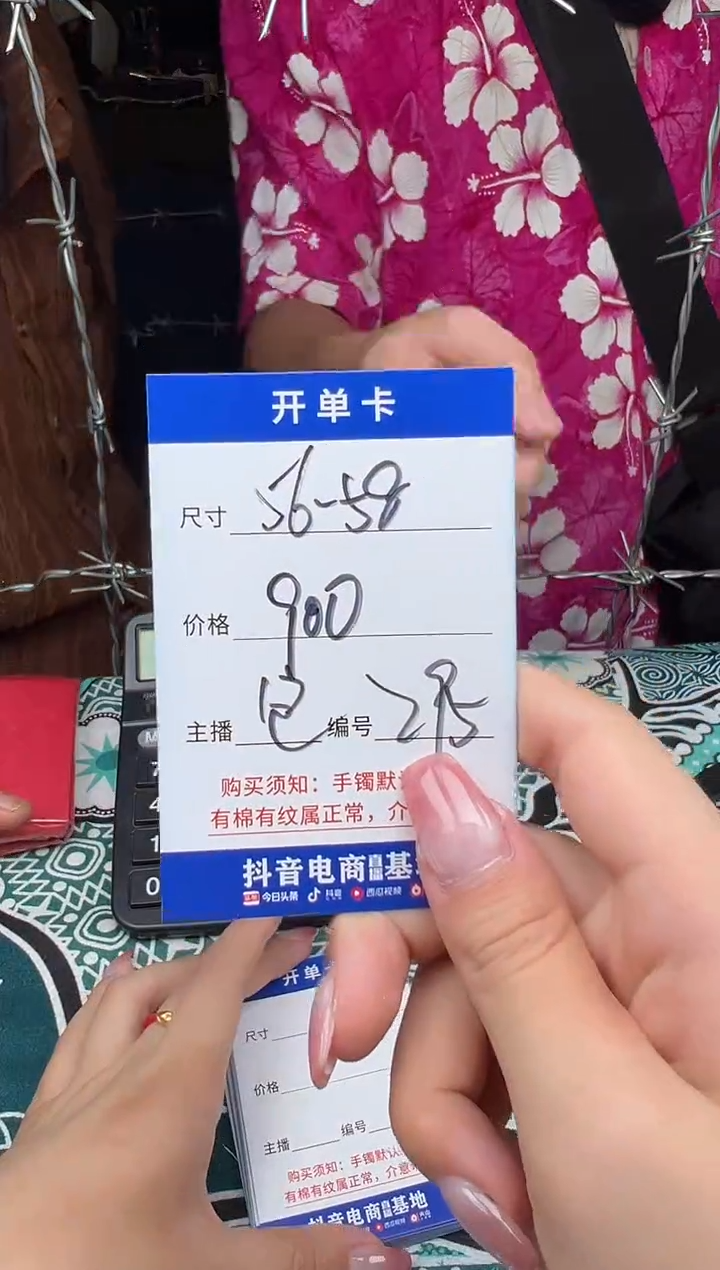 开单卡
尺寸 56-58
价格 900
主播 包 编号 295
购买须知：手镯默
有棉有纹属正常，介
抖音电商直播基地
今日头条 抖音 西瓜视频
M
7
4
1
0
开单
尺寸
价格
主播 编号
购买须知：手镯默认
有棉有纹属正常，介意
抖音电商直播基地